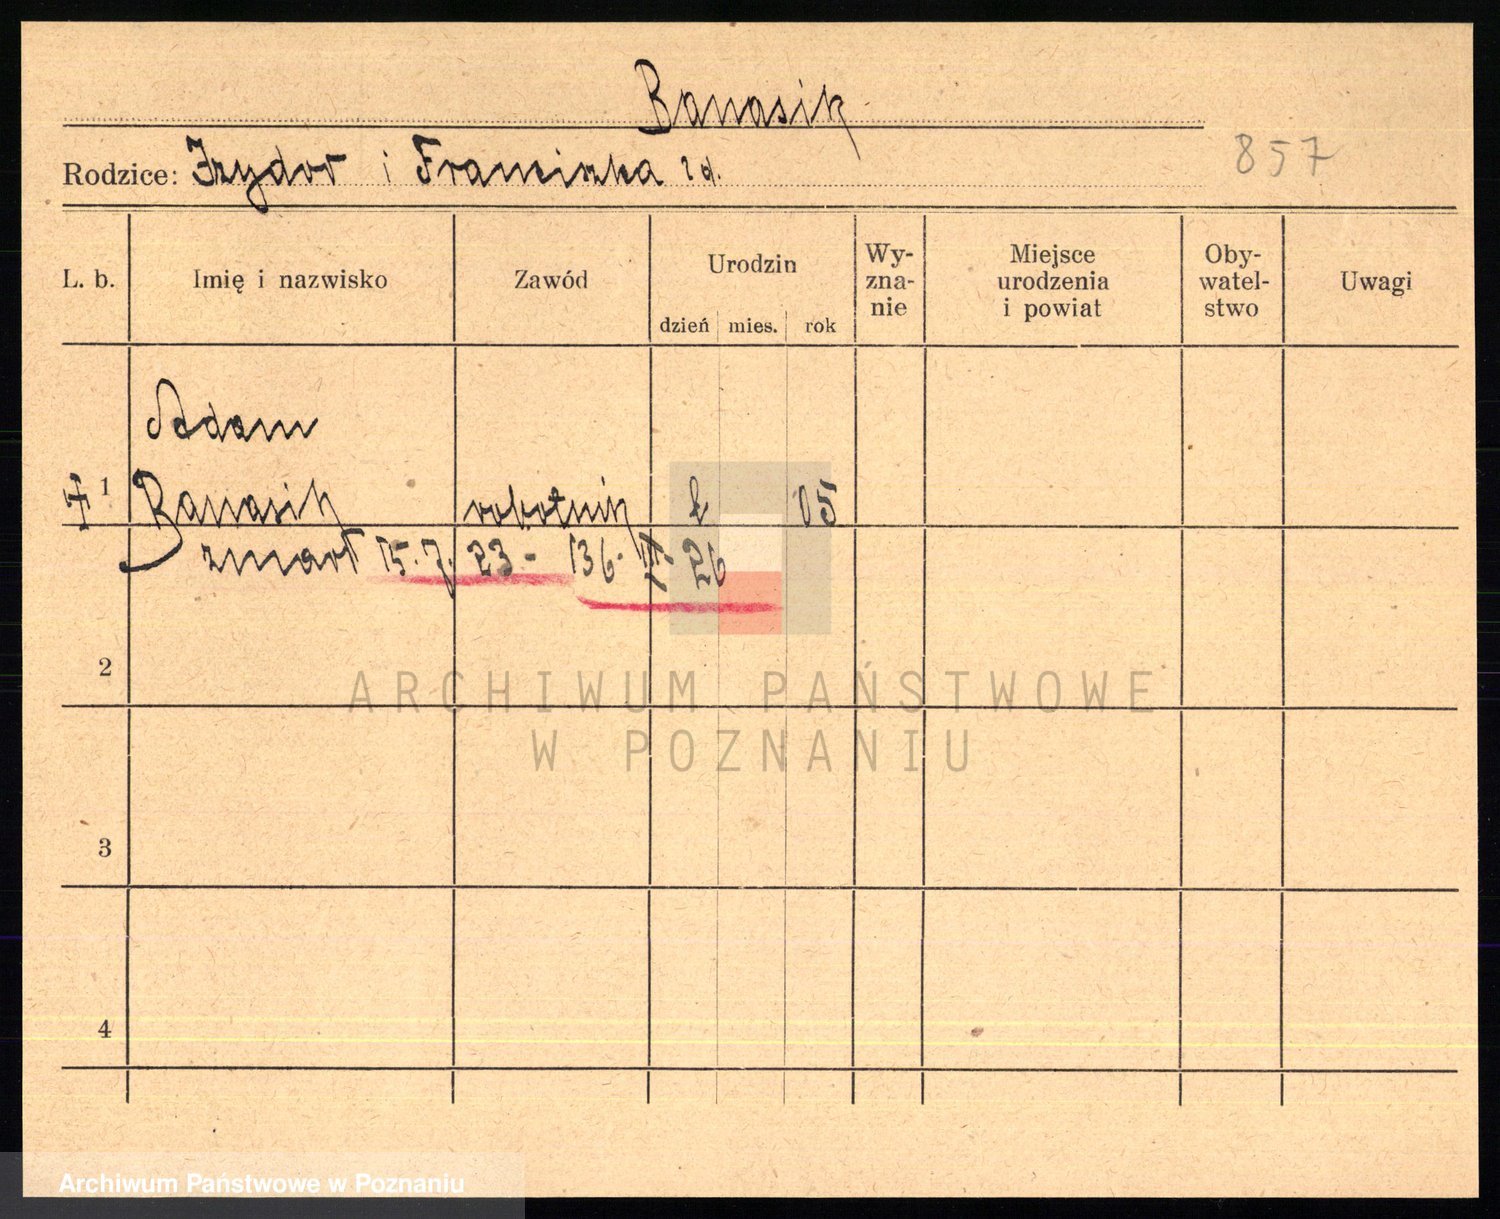 Banasik
857
Rodzice: Izydor i Franciszka
L. b. Imię i nazwisko Zawód Urodzin Wy- Miejsce Oby- Uwagi
zna- urodzenia watel-
nie i powiat stwo
dzień mies. rok
Adam
1 Banasik robotnik 05
zmarł 15. 7. 23 - 136. 26
2
ARCHIWUM PAŃSTWOWE
W POZNANIU
3
4
Archiwum Państwowe w Poznaniu